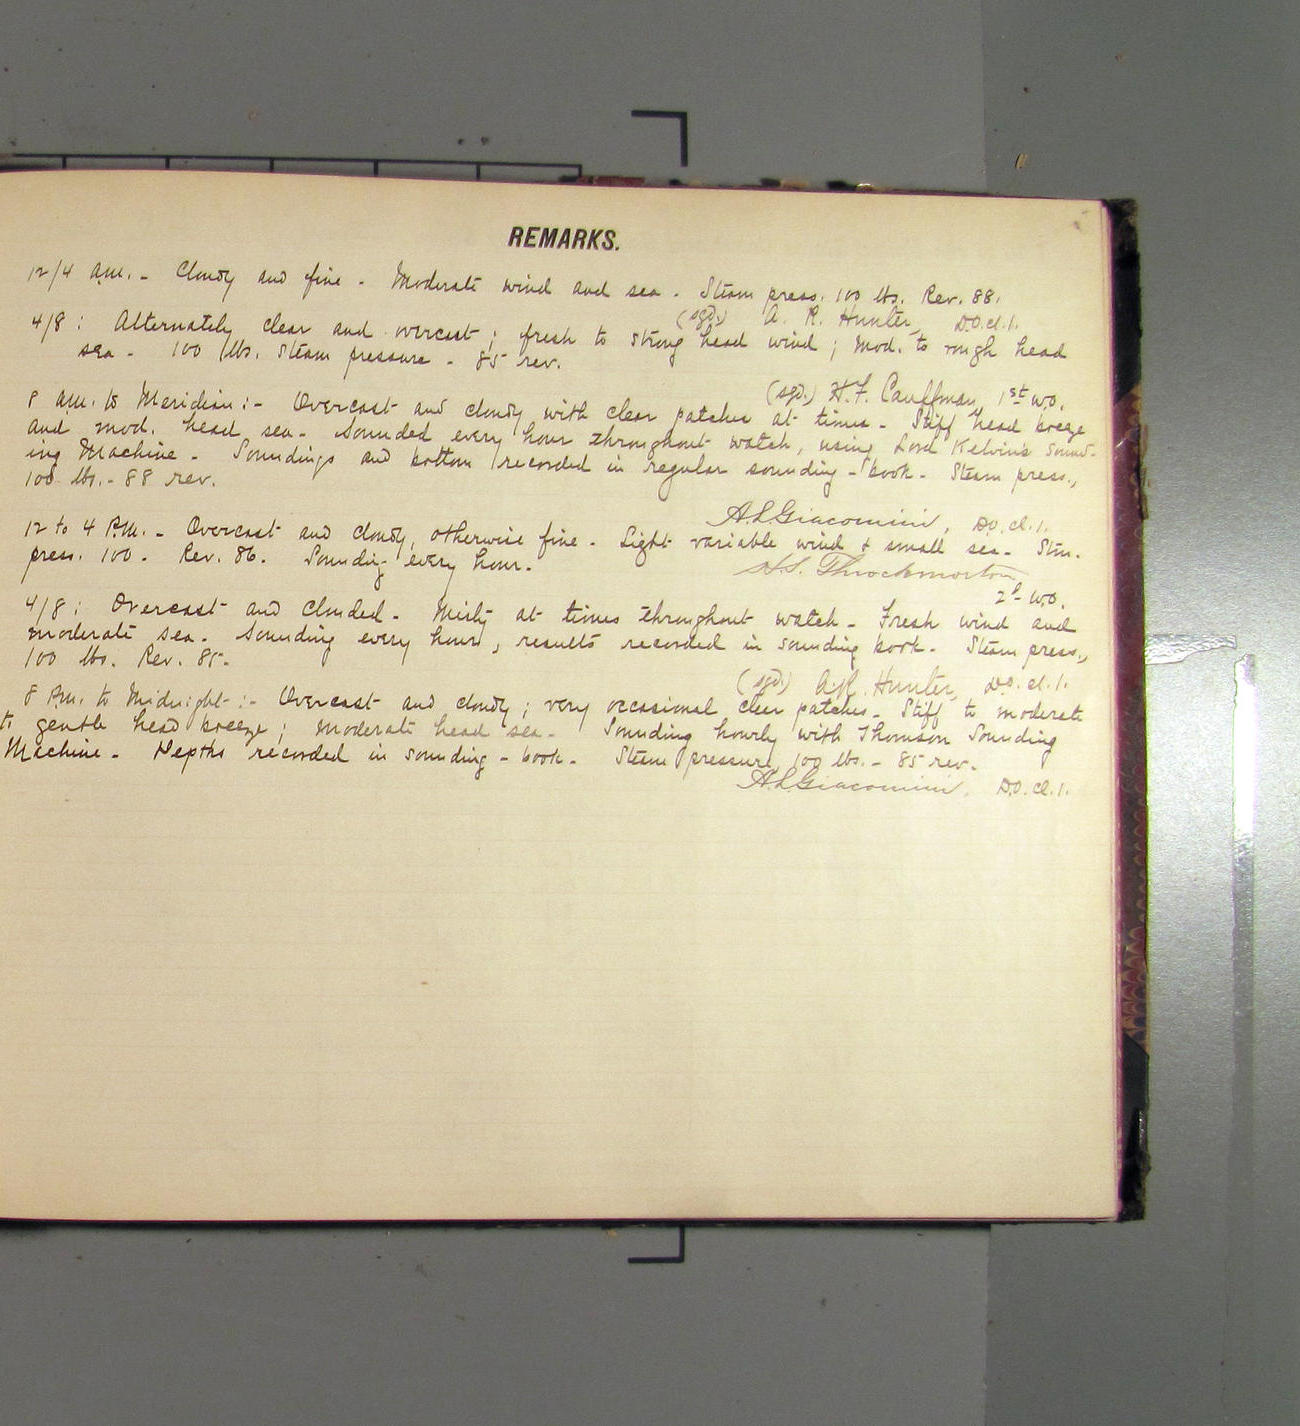 REMARKS.
12/4 a.m. - Cloudy and fine - Moderate wind and sea - Steam press. 100 lbs. Rev. 88.
(sgd.) A. R. Hunter, D.O. cl. 1.
4/8 : Alternately clear and overcast ; fresh to strong head wind ; Mod. to rough head
sea - 100 lbs. Steam pressure - 85 rev.
(sgd.) H.F. Cauffman, 1st W.O.
8 a.m. to Meridian :- Overcast and cloudy with clear patches at times - Stiff head breeze
and mod. head sea - Sounded every hour throughout watch, using Lord Kelvin's Sound-
ing Machine - Soundings and bottom recorded in regular sounding - book - Steam press.,
100 lbs. - 88 rev.
A.L. Giacomini, D.O. cl. 1.
12 to 4 P.M. - Overcast and cloudy, otherwise fine - Light variable wind & small sea - Stm.
press. 100 - Rev. 86. Sounding every hour.
H.S. Throckmorton
2d W.O.
4/8 : Overcast and Clouded - Misty at times throughout watch - Fresh wind and
moderate sea - Sounding every hour, results recorded in sounding book - Steam press.,
100 lbs. Rev. 85 -
(sgd) A.R. Hunter, D.O. cl. 1.
8 P.M. to Midnight :- Overcast and cloudy ; very occasional clear patches - Stiff to moderate
to gentle head breeze ; moderate head sea - Sounding hourly with Thomson Sounding
Machine - Depths recorded in sounding - book - Steam pressure, 100 lbs. - 85 rev.
A.L. Giacomini, D.O. cl. 1.